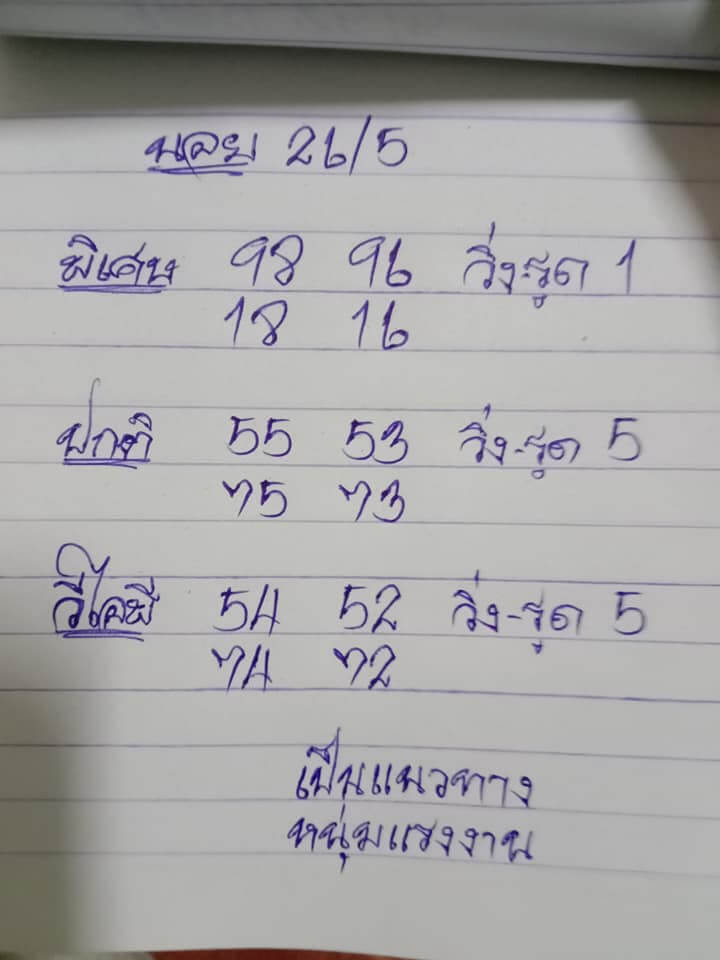 นอย 26/5
พิเศษ 98 96 วิ่ง-รูด 1
18 16
ปกติ 55 53 วิ่ง-รูด 5
75 73
วีไอพี 54 52 วิ่ง-รูด 5
74 72
เป็นแนวทาง
หนุ่มแรงงาน